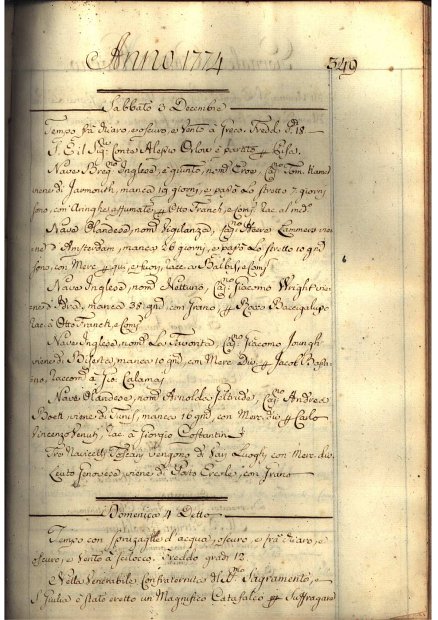 Anno 1774
349
Sabbato 3 Decembre
Tempo frà chiaro, e oscuro, e Vento à Greco. Freddo gdi 18
S. E. il Sigr. Conte Alessio Orlow è partito Pisa.
Nave Inglese, è giunto, nomo Eroe, Capno Tom.
viene di Jarmouth, manca 19 giorni, e passò lo stretto 7 giorni
sono, con Aringhe affumate Otto Franck, e Comi rac. al medo
Nava Olandese, nomo Vigilanza, Capno Lammers
d'Amsterdam, manca 26 giorni, e passò lo stretto 10 gni
sono, con Merc. qui, e fuori, rac. a Balbis, e Comi
Nave Inglese, nomo Nettuno, Capno Giacomo Wright
manca 38 gni, con Grano Rosso Bacigalupo
rac. a Otto Franck, e Comi
Nave Inglese, nomo La Capno Giacomo
viene di Biserta, manca 10 gni, con Merc. Div. Jacob
raccomo a Gio. Calamai
Nave Olandese, nomo Arnoldo Capno Andrea
Boek, viene di Tunis, manca 16 gni, con Merc. div. Carlo
Vincenzo Venuti, rac. a Giorgio Costantin
Tre Navicelli Toscani vengono di Varj Luoghi con Merc. div.
Leuto Genovese, viene di Porto Ercole, con Grano
Domenica 4 Detto
Tempo con spruzzaglie d'acqua, oscuro, e frà chiaro, e
oscuro, e Vento à scilocco. Freddo gradi 12
Nella Venerabile Confraternita del Sagramento, e
S. Giulia è stato eretto un Magnifico Catafalco Suffragare